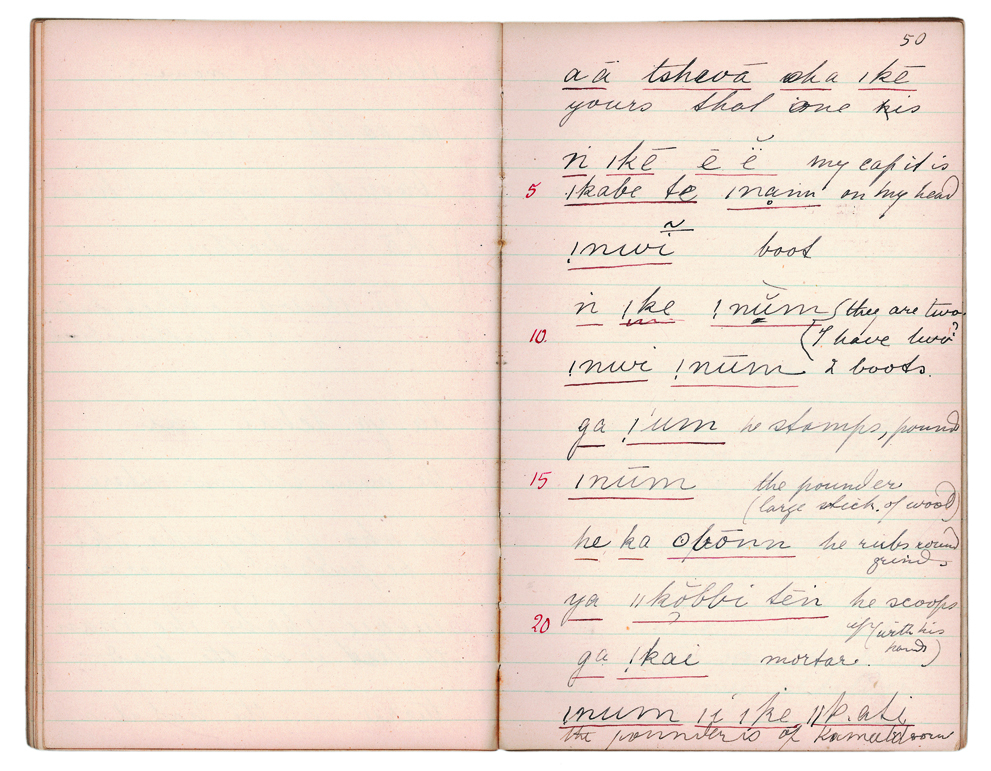 50
a ā tshevā sha ǀkē
yours that one his
ṅ ǀkē ē ë̆ my cap it is
5 ǀkabe te ǀnạm on my head
ǃnwı̃ boot
ṅ ǃke ǃnŭm (they are two.
10. (I have two?
ǃnwi ǃnūm 2 boots.
ga ǃʼum he stamps, pound
15 ǀnūm the pounder
(large stick of wood)
he ka ʘbōnn he rubs round
grinds
ya ǁkŏbbi tēn he scoops
20 up (with his
hand)
ga ǃkai mortar.
ǀnum ǀke
the pounder is of Kameeldoorn